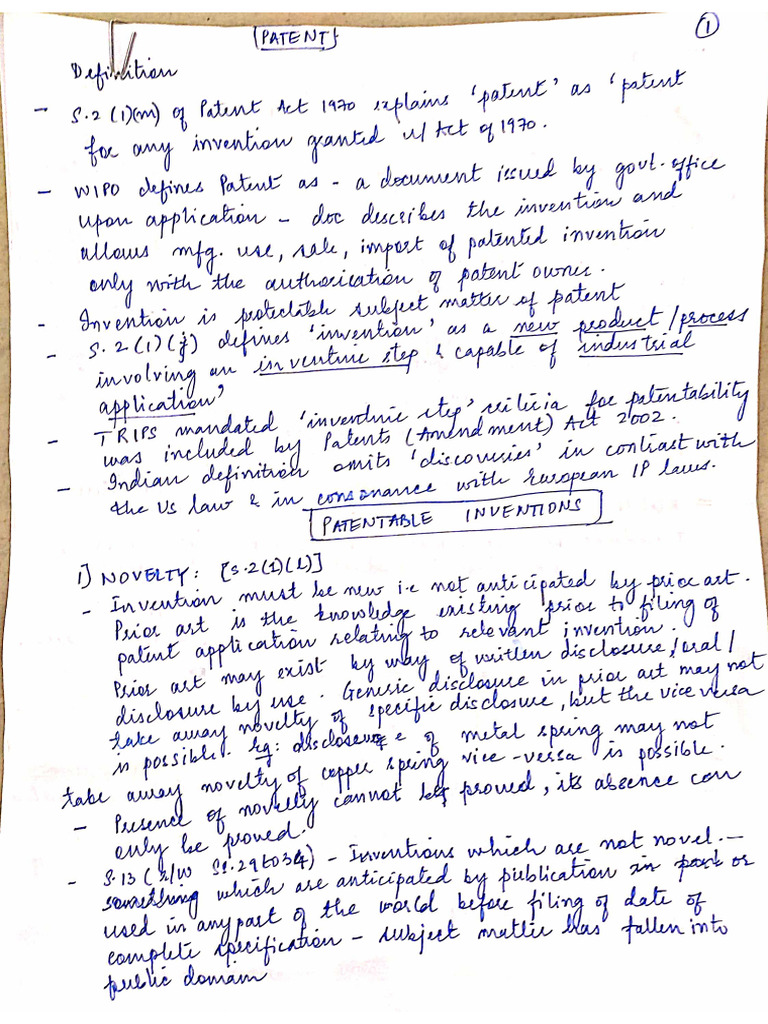 [PATENT]
1
Definition
- S.2 (1)(m) of Patent Act 1970 explains 'patent' as 'patent
for any invention granted u/Act of 1970.
- WIPO defines Patent as - a document issued by govt. office
upon application - doc describes the invention and
allows mfg. use, sale, import of patented invention
only with the authorisation of patent owner.
- Invention is protectable subject matter of patent
- S. 2 (1) (j) defines 'invention' as a new product/process
involving an inventive step & capable of industrial
application'
- TRIPS mandated 'inventive step' criteria for patentability
was included by Patents (Amendment) Act 2002.
- Indian definition omits 'discoveries' in contrast with
the US law & in consonance with European IP laws.
PATENTABLE INVENTIONS
1] NOVELTY: [S.2(1)(l)]
- Invention must be new i.e not anticipated by prior art.
Prior art is the knowledge existing prior to filing of
patent application relating to relevant invention.
Prior art may exist by way of written disclosure/oral/
disclosure by use. Generic disclosure in prior art may not
take away novelty of specific disclosure, but the vice versa
is possible. Eg: disclosure of metal spring may not
take away novelty of copper spring vice-versa is possible.
- Presence of novelty cannot be proved, its absence can
only be proved.
- S.13 (r/w Ss.29to34) - Inventions which are not novel. -
something which are anticipated by publication in part or
used in any part of the world before filing of date of
complete specification - subject matter has fallen into
public domain